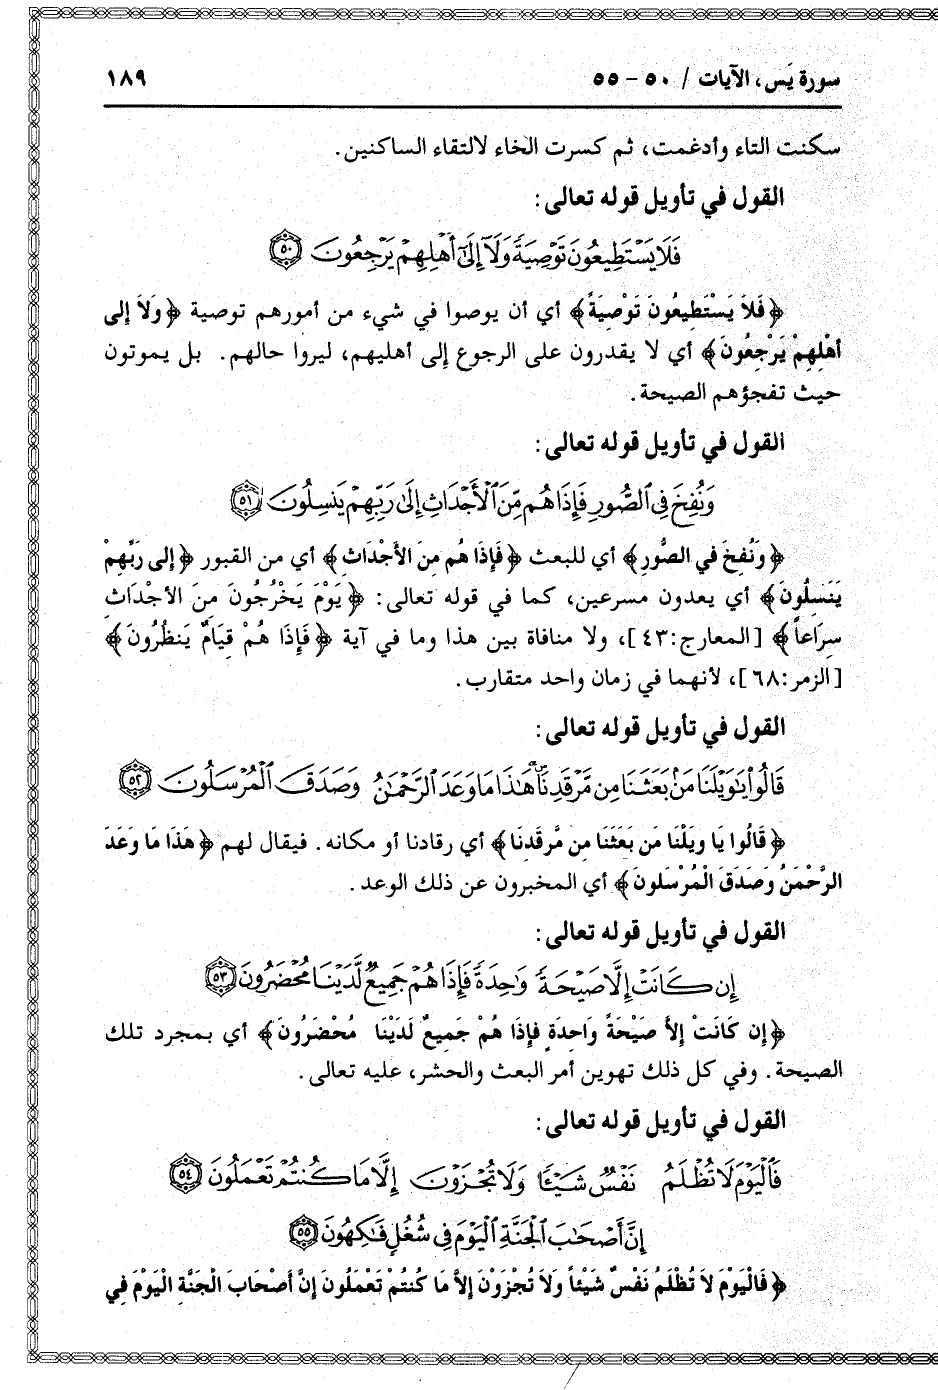 سورة يَس، الآيات / ٥٠ - ٥٥ ١٨٩
سكنت التاء وأدغمت، ثم كسرت الخاء لالتقاء الساكنين.
القول في تأويل قوله تعالى:
فَلَا يَسْتَطِيعُونَ تَوْصِيَةً وَلَآ إِلَىٰٓ أَهْلِهِمْ يَرْجِعُونَ ٥٠
﴿فَلاَ يَسْتَطِيعُونَ تَوْصِيَةً﴾ أي أن يوصوا في شيء من أمورهم توصية ﴿وَلاَ إلى
أهْلِهِمْ يَرْجِعُونَ﴾ أي لا يقدرون على الرجوع إلى أهليهم، ليروا حالهم. بل يموتون
حيث تفجؤهم الصيحة.
القول في تأويل قوله تعالى:
وَنُفِخَ فِي ٱلصُّورِ فَإِذَا هُم مِّنَ ٱلْأَجْدَاثِ إِلَىٰ رَبِّهِمْ يَنسِلُونَ ٥١
﴿وَنُفِخَ في الصُّورِ﴾ أي للبعث ﴿فَإِذَا هُم مِنَ الأَجْدَاثِ﴾ أي من القبور ﴿إلى رَبِّهِمْ
يَنَسِلُونَ﴾ أي يعدون مسرعين، كما في قوله تعالى: ﴿يَوْمَ يَخْرُجُونَ مِنَ الأجْدَاثِ
سِرَاعاً﴾ [المعارج:٤٣]، ولا منافاة بين هذا وما في آية ﴿فَإِذَا هُمْ قِيَامٌ يَنظُرُونَ﴾
[الزمر:٦٨]، لأنهما في زمان واحد متقارب.
القول في تأويل قوله تعالى:
قَالُوا۟ يَٰوَيْلَنَا مَنۢ بَعَثَنَا مِن مَّرْقَدِنَاۗ هَٰذَا مَا وَعَدَ ٱلرَّحْمَٰنُ وَصَدَقَ ٱلْمُرْسَلُونَ ٥٢
﴿قَالُوا يَا وَيلْنَا مَن بَعَثَنَا مِن مَّرقَدِنَا﴾ أي رقادنا أو مكانه. فيقال لهم ﴿هَذَا مَا وَعَدَ
الرَّحْمَنُ وَصَدَقَ الْمُرْسَلونَ﴾ أي المخبرون عن ذلك الوعد.
القول في تأويل قوله تعالى:
إِن كَانَتْ إِلَّا صَيْحَةً وَٰحِدَةً فَإِذَا هُمْ جَمِيعٌ لَّدَيْنَا مُحْضَرُونَ ٥٣
﴿إن كَانَتْ إلاَّ صَيْحَةً وَاحِدَةٍ فإذَا هُمْ جَمِيعٌ لَدَيْنَا مُحْضَرُونَ﴾ أي بمجرد تلك
الصيحة. وفي كل ذلك تهوين أمر البعث والحشر، عليه تعالى.
القول في تأويل قوله تعالى:
فَٱلْيَوْمَ لَا تُظْلَمُ نَفْسٌ شَيْـًٔا وَلَا تُجْزَوْنَ إِلَّا مَا كُنتُمْ تَعْمَلُونَ ٥٤
إِنَّ أَصْحَٰبَ ٱلْجَنَّةِ ٱلْيَوْمَ فِي شُغُلٍ فَٰكِهُونَ ٥٥
﴿فَالْيَوْمَ لاَ تُظْلَمُ نَفْسٌ شَيْئاً وَلاَ تُجْزَوْنَ إلاَّ مَا كُنتُمْ تَعْمَلُونَ إنَّ أصْحَابَ الْجَنَّةِ الْيَوْمَ فِي